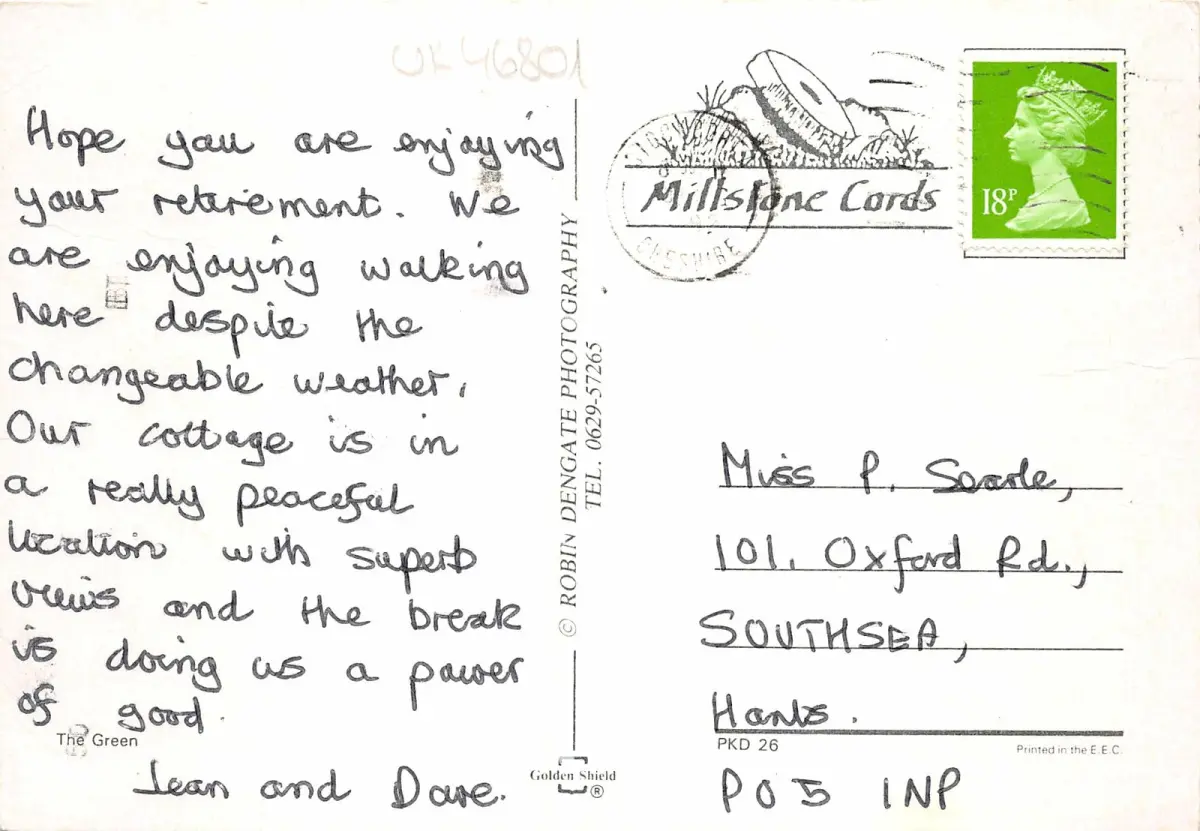 UK46801
Hope you are enjoying
your retirement. We
are enjoying walking
here despite the
changeable weather,
Our cottage is in
a really peaceful
location with superb
views and the break
is doing us a power
of good.
The Green
Jean and Dave.
© ROBIN DENGATE PHOTOGRAPHY
TEL. 0629-57265
Golden Shield
®
Millstone Cards
CHESHIRE
18P
Miss P. Searle,
101, Oxford Rd.,
SOUTHSEA,
Hants.
PKD 26
Printed in the E.E.C.
PO5 1NP